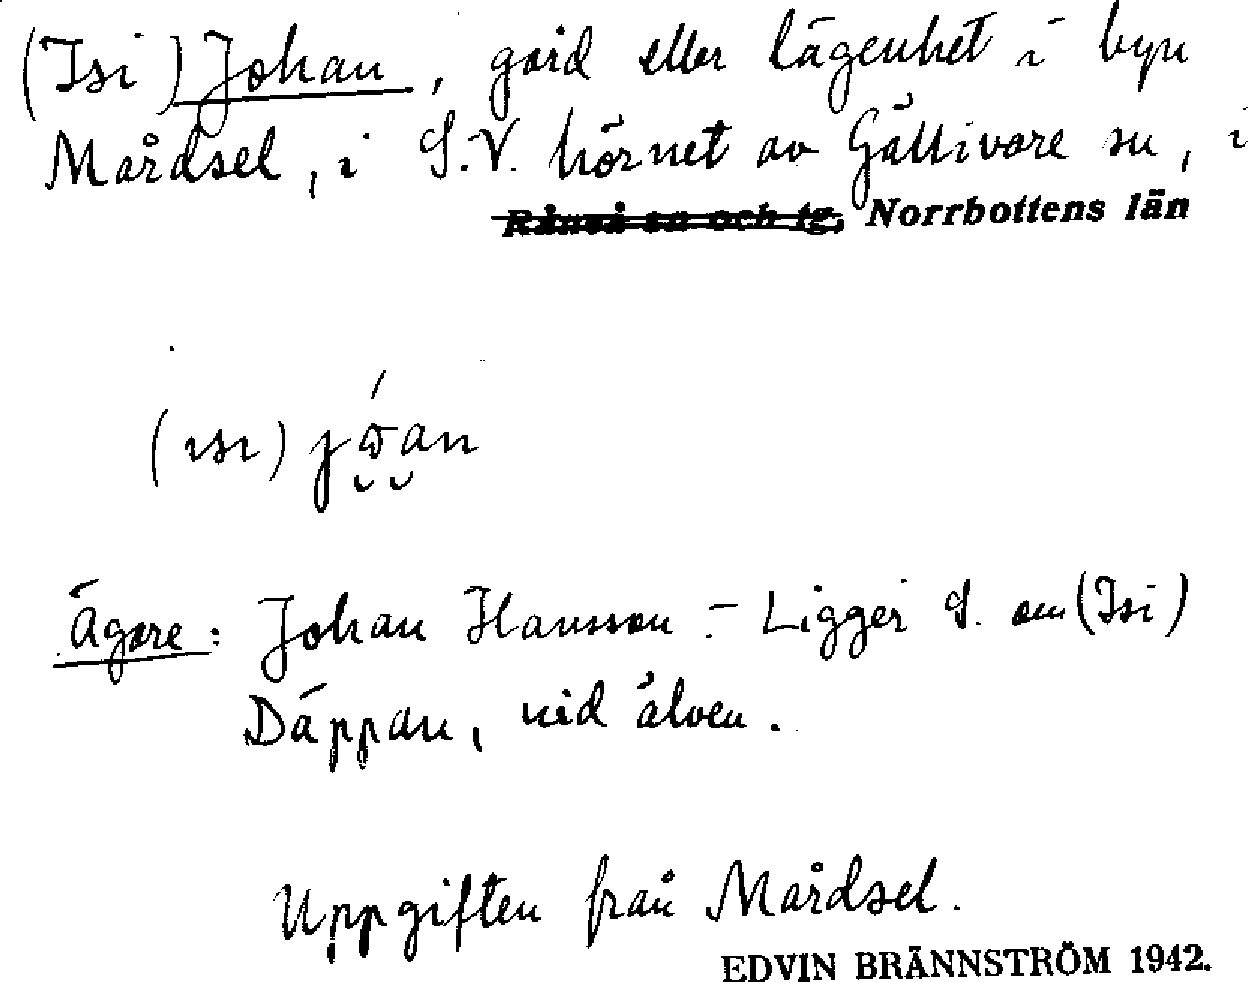 (Isi) Johan, gård eller lägenhet i byn
Mårdsel, i S.V. hörnet av Gällivare sn, i
Råneå sn och tg, Norrbottens län
(ısı) jɷ́an
Ägare: Johan Hansson. – Ligger S. om (Isi)
Däppan, vid älven.
Uppgiften från Mårdsel.
EDVIN BRÄNNSTRÖM 1942.